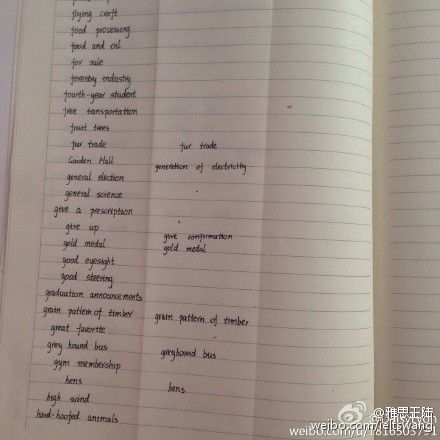 flying craft
food processing
food and oil
for sale
forestry industry
fourth-year student
free transportation
fruit trees
fur trade fur trade
Garden Hall
general election generation of electricity
general science
give a prescription
give up give confirmation
gold medal gold medal
good eyesight
good steering
graduation announcements
grain pattern of timber grain pattern of timber
great favorite
grey hound bus greyhound bus
gym membership
hens hens
high wind
hard-hoofed animals
@雅思王陆
weibo.com/ieltswang
weibo.com/u/1816503791